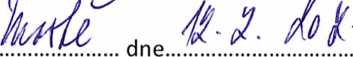 Mostě dne 12. 2. 202